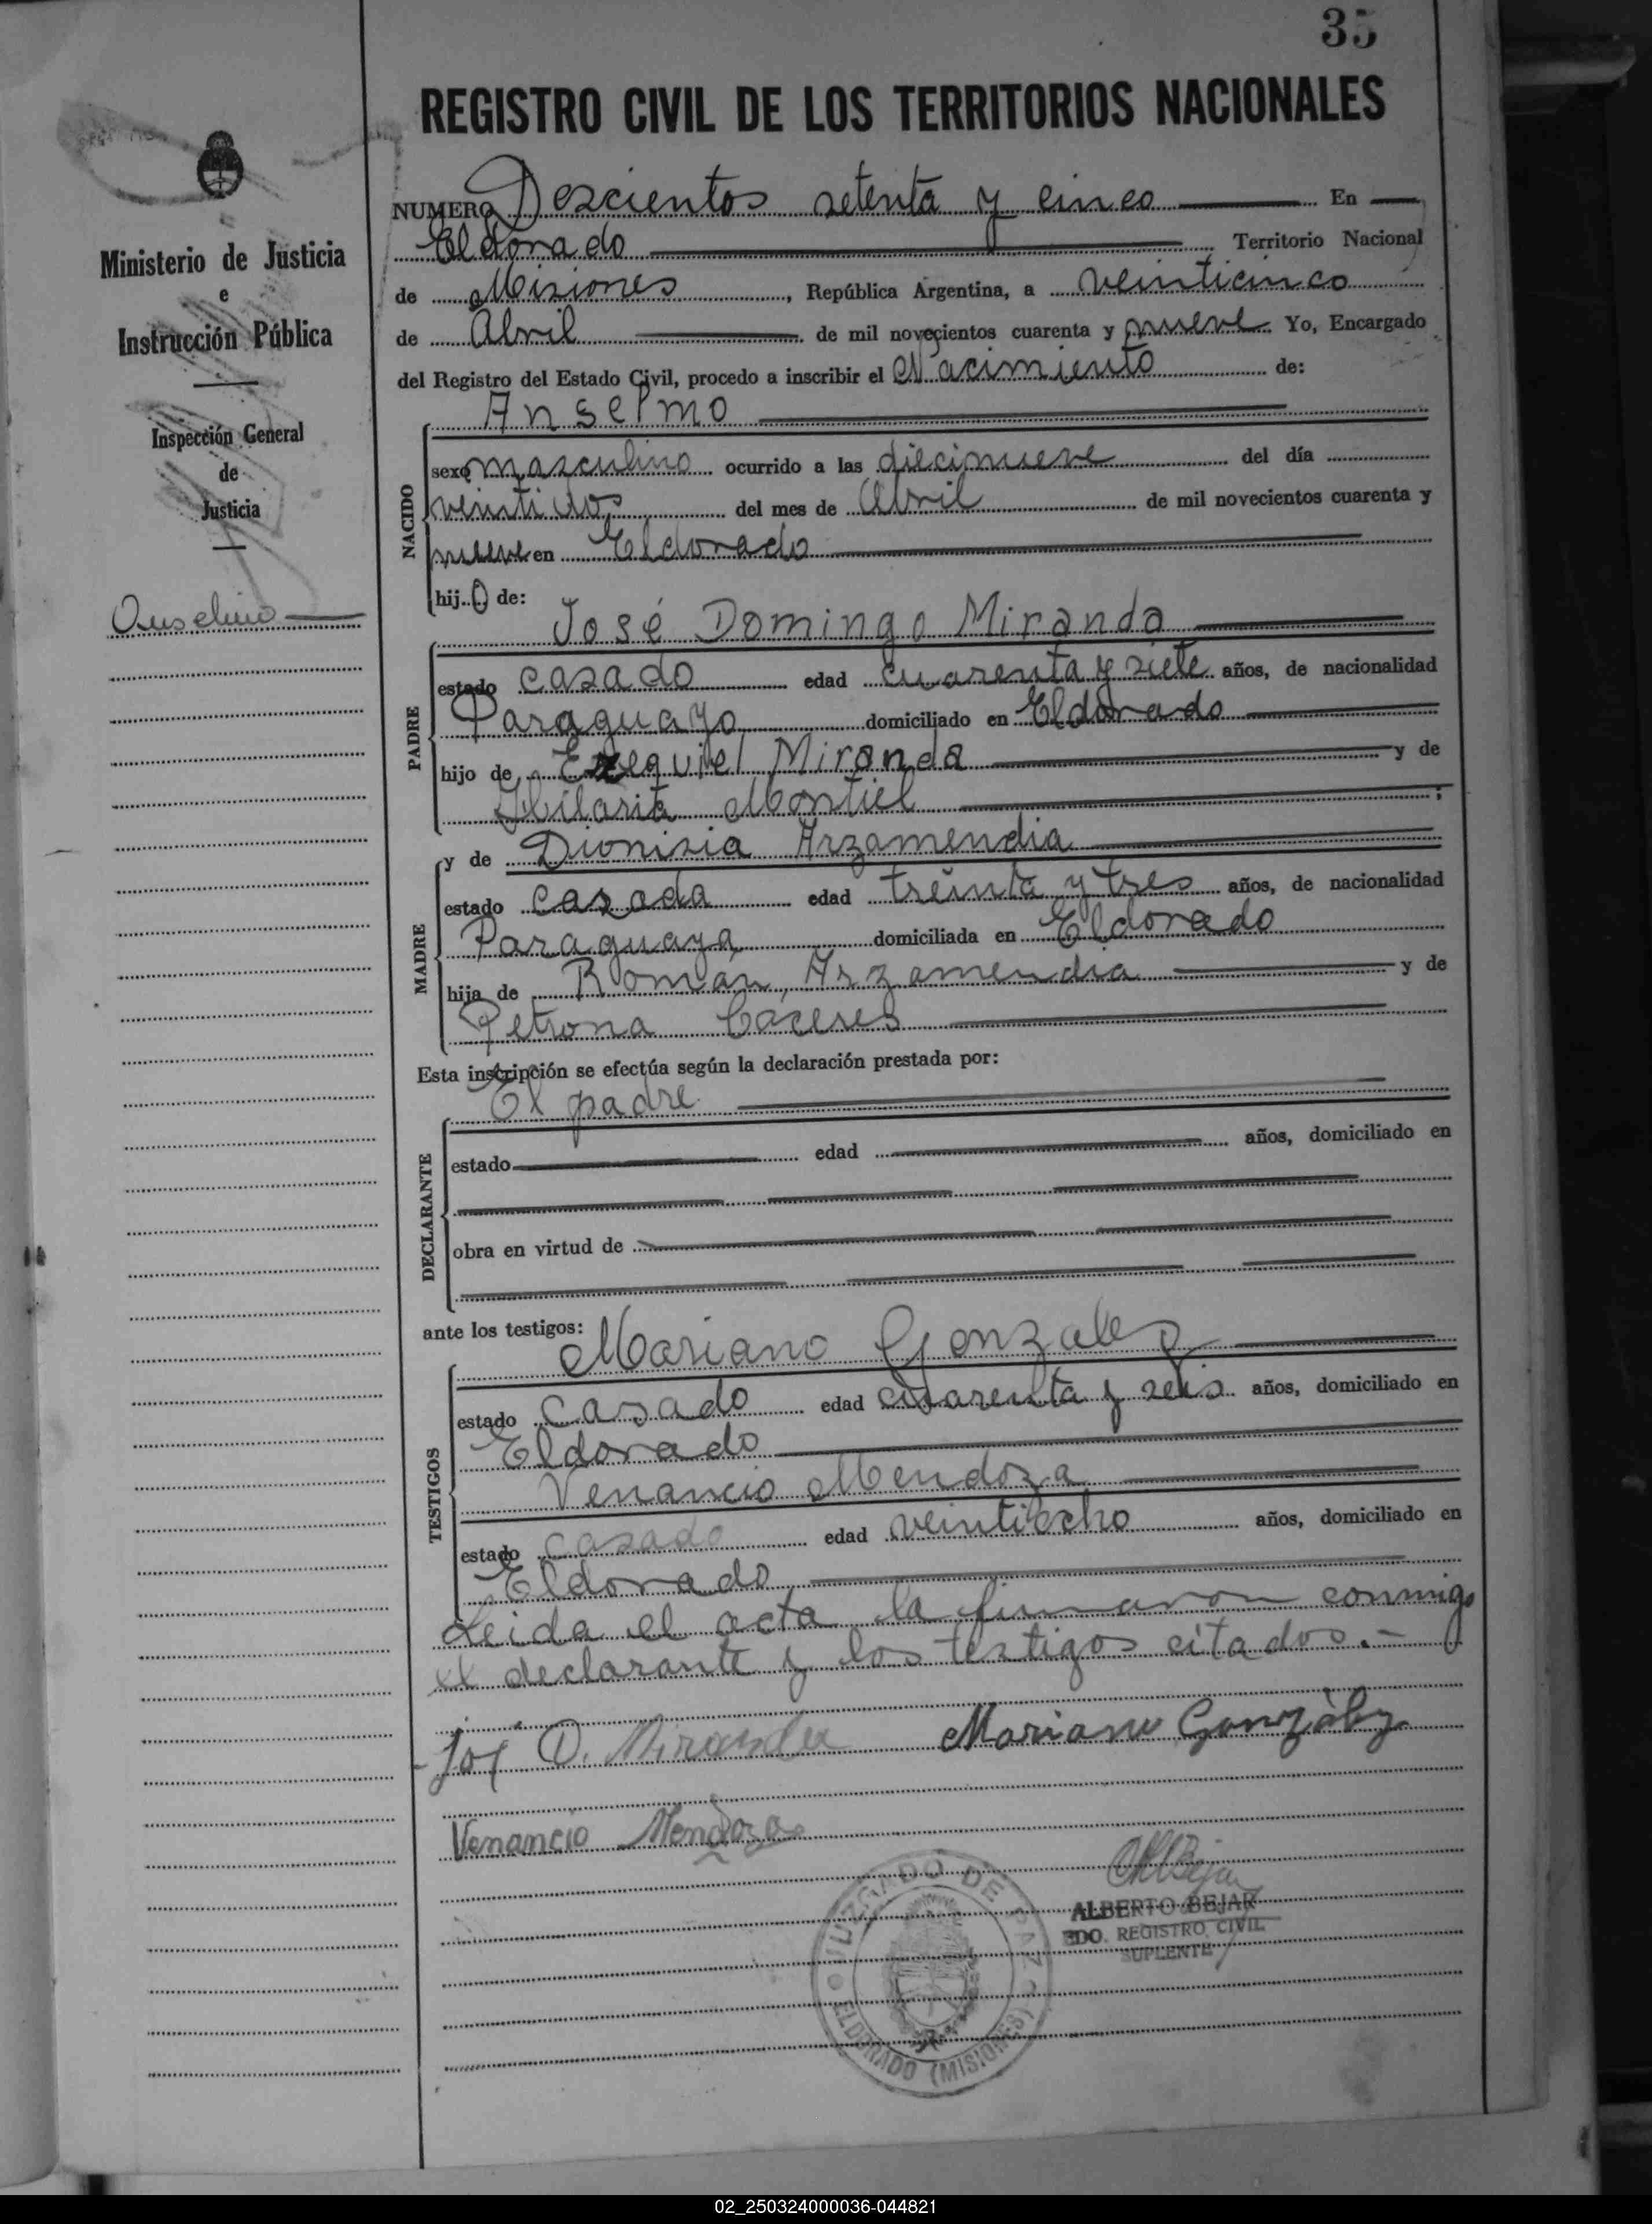 35
REGISTRO CIVIL DE LOS TERRITORIOS NACIONALES
NUMERO Doscientos setenta y cinco En
Eldorado Territorio Nacional
de Misiones, República Argentina, a veinticinco
de Abril de mil novecientos cuarenta y nueve. Yo, Encargado
del Registro del Estado Civil, procedo a inscribir el Nacimiento de:
Anselmo
NACIDO
sexo masculino ocurrido a las diecinueve del día
veintidos del mes de Abril de mil novecientos cuarenta y
nueve en Eldorado
hijo de:
PADRE
José Domingo Miranda
estado casado edad cuarenta y siete años, de nacionalidad
Paraguayo domiciliado en Eldorado
hijo de Ezequiel Miranda y de
Hilaria Montiel ;
MADRE
y de Dionisia Arzamendia
estado casada edad treinta y tres años, de nacionalidad
Paraguaya domiciliada en Eldorado
hija de Román Arzamendia y de
Petrona Caceres
Esta inscripción se efectúa según la declaración prestada por:
El padre
DECLARANTE
estado edad años, domiciliado en
obra en virtud de
ante los testigos:
TESTIGOS
Mariano Gonzalez
estado casado edad cuarenta y seis años, domiciliado en
Eldorado
Venancio Mendoza
estado casado edad veintiocho años, domiciliado en
Eldorado
Leida el acta la firmaron conmigo
el declarante y los testigos citados.-
José D. Miranda Mariano Gonzàlez
Venancio Mendoza
JUZGADO DE PAZ
ELDORADO (MISIONES)
ALBERTO BEJAR
EDO. REGISTRO CIVIL
SUPLENTE
Ministerio de Justicia
e
Instrucción Pública
Inspección General
de
Justicia
Anselmo
02_250324000036-044821